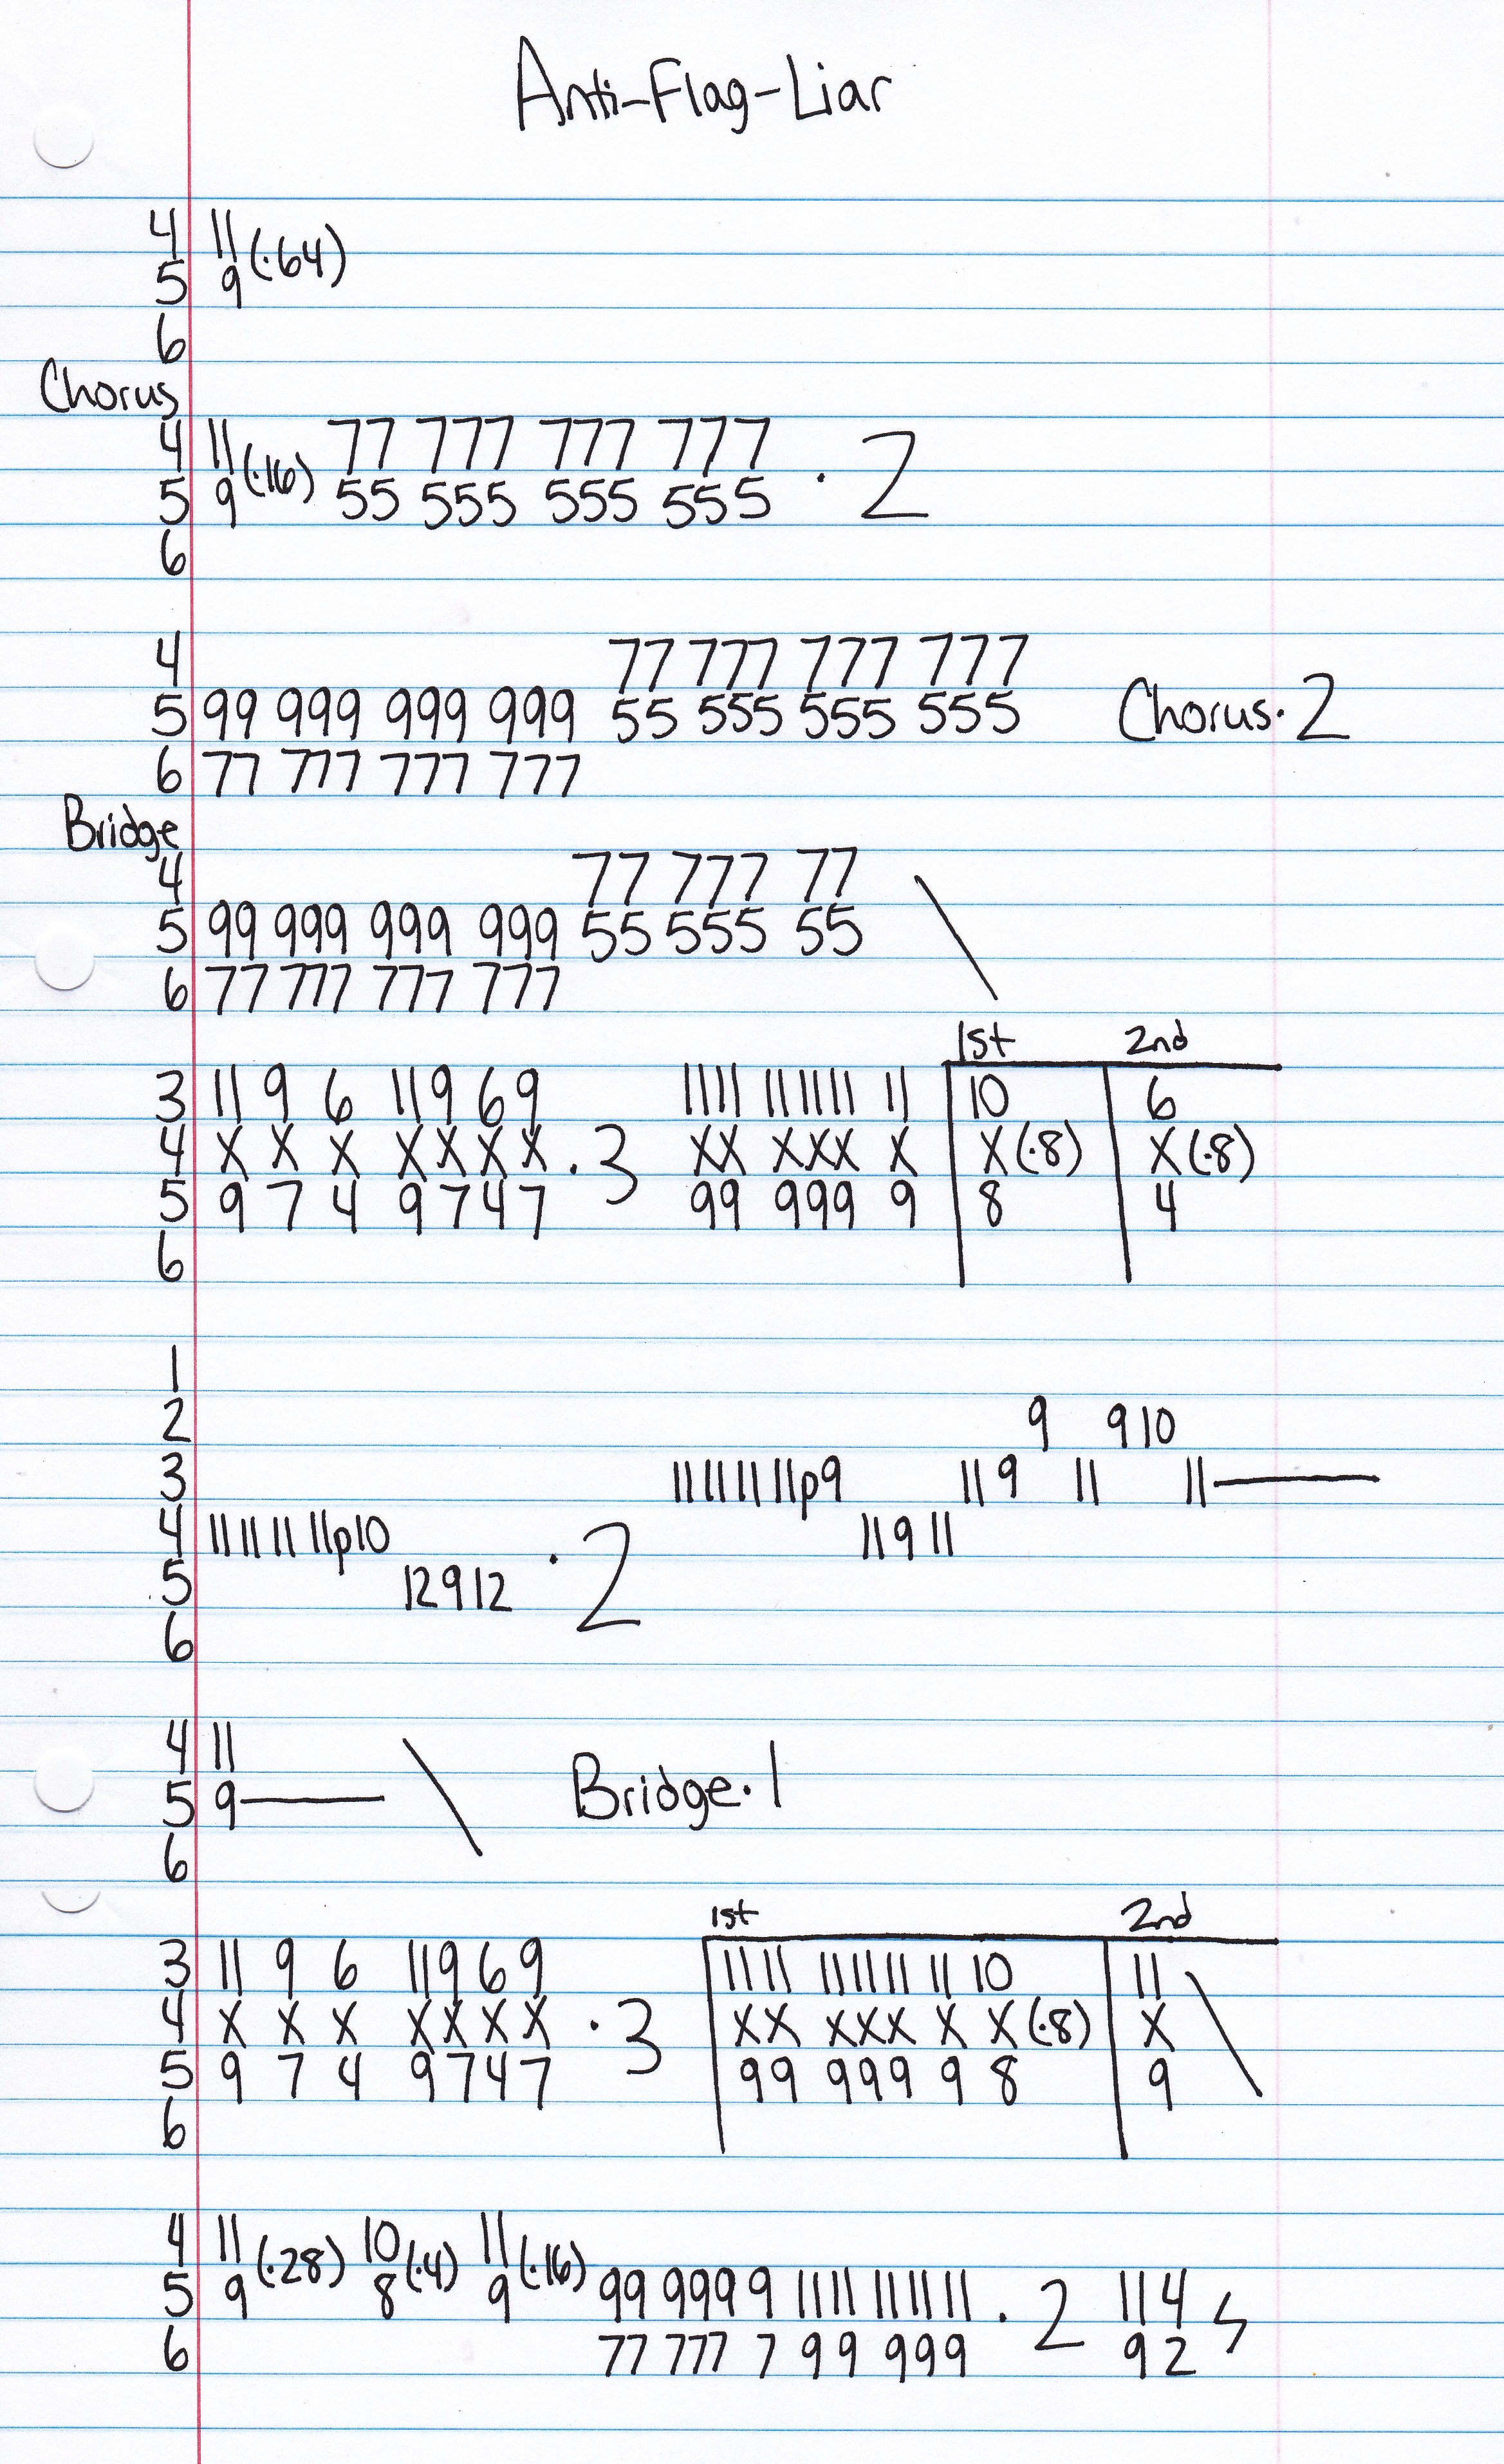 Anti-Flag-Liar
4 11
5 9 (·64)
6
Chorus
4 11 77 777 777 777
5 9 (·16) 55 555 555 555 · 2
6
4 77 777 777 777
5 99 999 999 999 55 555 555 555 Chorus·2
6 77 777 777 777
Bridge
4 77 777 77 \
5 99 999 999 999 55 555 55
6 77 777 777 777
1st 2nd
3 11 9 6 11 9 6 9 1111 111111 11 10 6
4 X X X X X X X ·3 XX XXX X X (·8) X (·8)
5 9 7 4 9 7 4 7 99 999 9 8 4
6
1
2 9 9 10
3 11 11 11 11p9 11 9 11 11—
4 11 11 11 11p10 11 9 11
5 12 9 12 · 2
6
4 11
5 9— \ Bridge·1
6
1st 2nd
3 11 9 6 11 9 6 9 1111 111111 11 10 11 \
4 X X X X X X X ·3 XX XXX X X (·8) X
5 9 7 4 9 7 4 7 99 999 9 8 9
6
4 11 (·28) 10 (·4) 11 (·16)
5 9 8 9 99 999 9 1111 111111 · 2 11 4
6 77 777 7 99 999 9 2